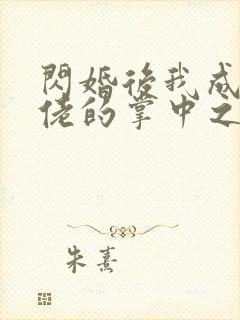 閃婚後我成
佬的掌中之
朱熹